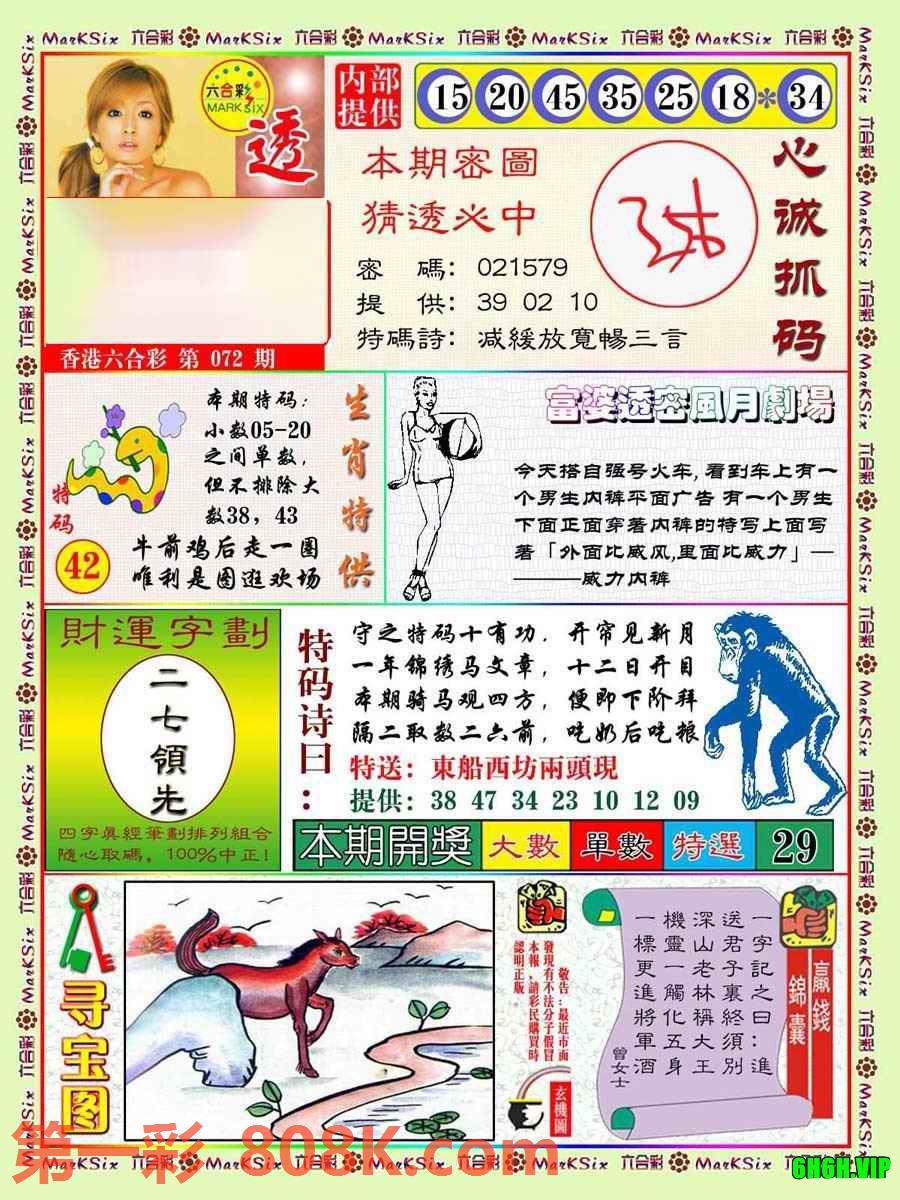 六合彩
MARK SIX
透
内部
提供
15 20 45 35 25 18 * 34
本期密圖
猜透必中
密 碼: 021579
提 供: 39 02 10
特碼詩: 减緩放寬暢三言
心诚抓码
香港六合彩 第 072 期
本期特码:
小数05-20
之间单数,
但不排除大
数38, 43
生肖特供
特码
42
牛前鸡后走一圈
唯利是图逛欢场
富婆透密風月劇場
今天搭自强号火车, 看到车上有一
个男生内裤平面广告 有一个男生
下面正面穿着内裤的特写上面写
著「外面比威风,里面比威力」—
————威力内裤
財運字劃
二七領先
四字真經筆劃排列組合
隨心取碼, 100%中正!
特码诗曰:
守之特码十有功, 开帘见新月
一年锦绣马文章, 十二日开目
本期骑马观四方, 便即下阶拜
隔二取数二六前, 吃奶后吃粮
特送: 東船西坊兩頭現
提供: 38 47 34 23 10 12 09
本期開獎 大數 單數 特選 29
寻宝图
敬告:最近市面
發現有不法分子假冒
本報,請彩民購買時
認明正版。
玄機圖
贏錢
錦囊
一字記之曰:進
送君子裏終須別
深山老林稱大王
機靈一觸化五身
一標更進將軍酒
曾女士
第一彩 808K.com
6H6H.VIP
MarKSix 六合彩 MarKSix 六合彩 MarKSix 六合彩 MarKSix 六合彩 MarKSix 六合彩